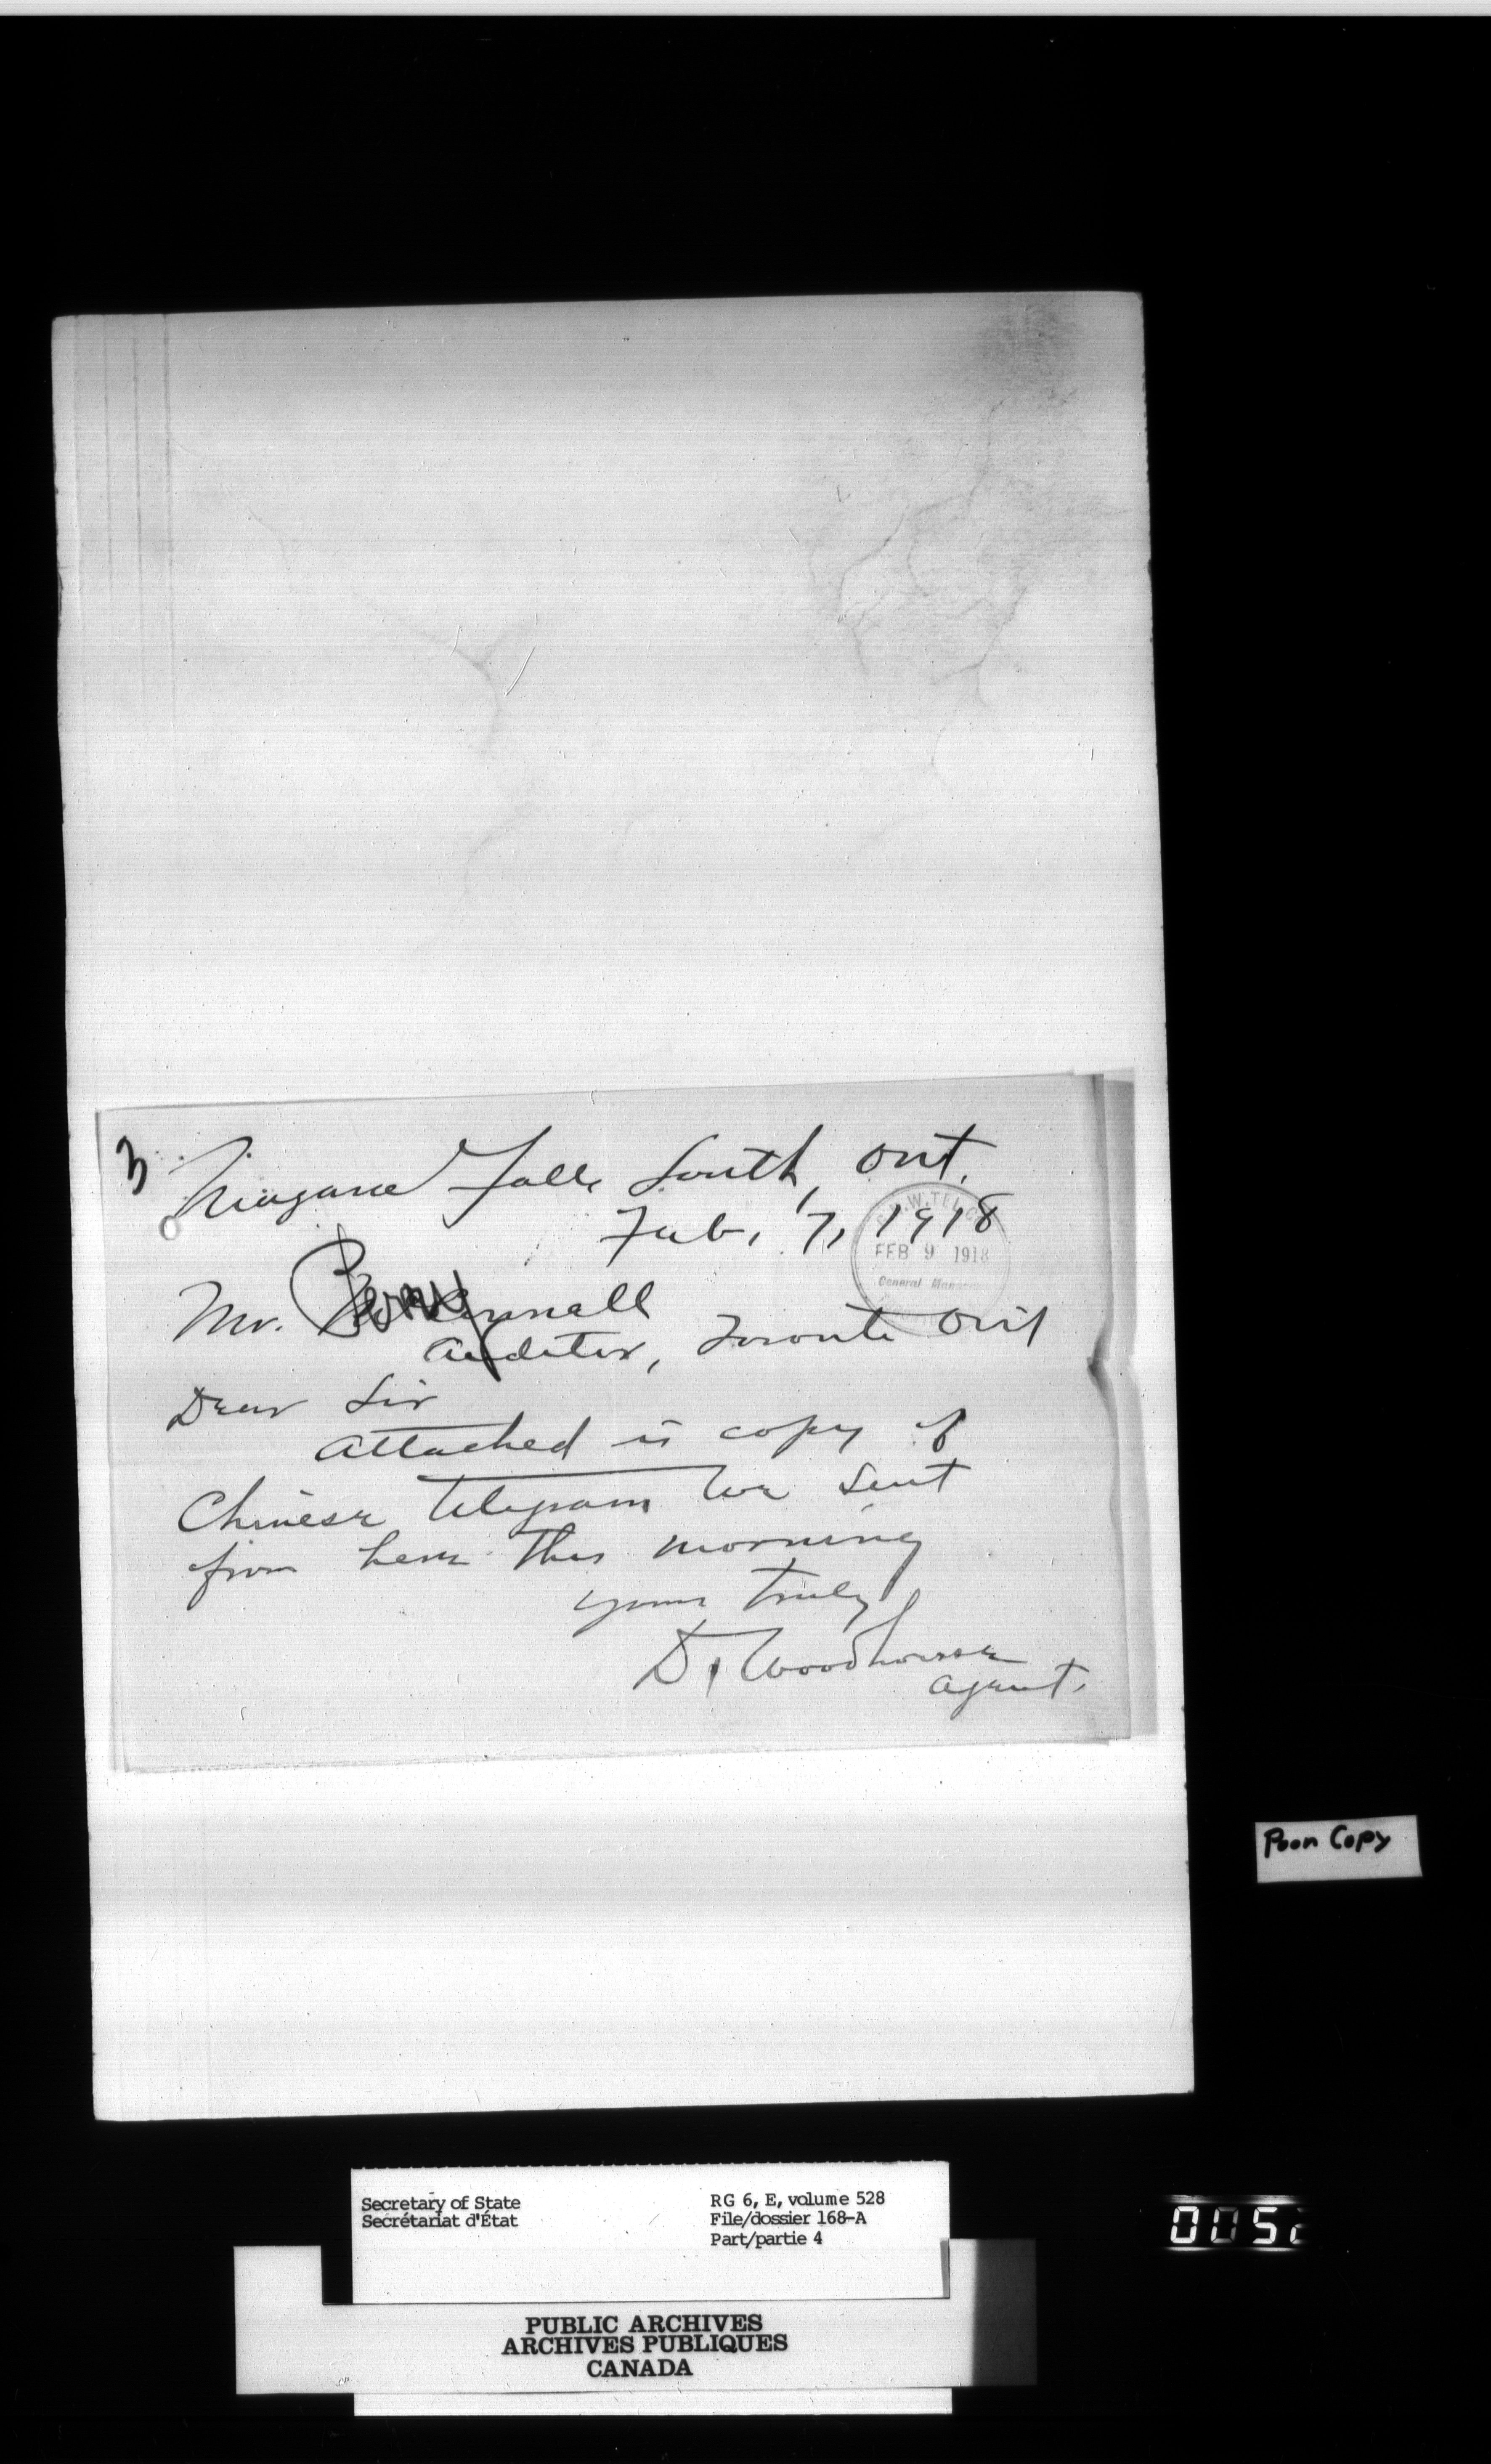 3
Niagara Falls South, Ont.
Feb, 7, 1918
FEB 9 1918
General
Mr.
Auditor, Toronto Ont
Dear Sir
Attached is copy of
Chinese telegram we sent
from here this morning
yours truly
D. Woodhouse
Agent.
Poor Copy
Secretary of State
Secrétariat d'État
RG 6, E, volume 528
File/dossier 168-A
Part/partie 4
PUBLIC ARCHIVES
ARCHIVES PUBLIQUES
CANADA